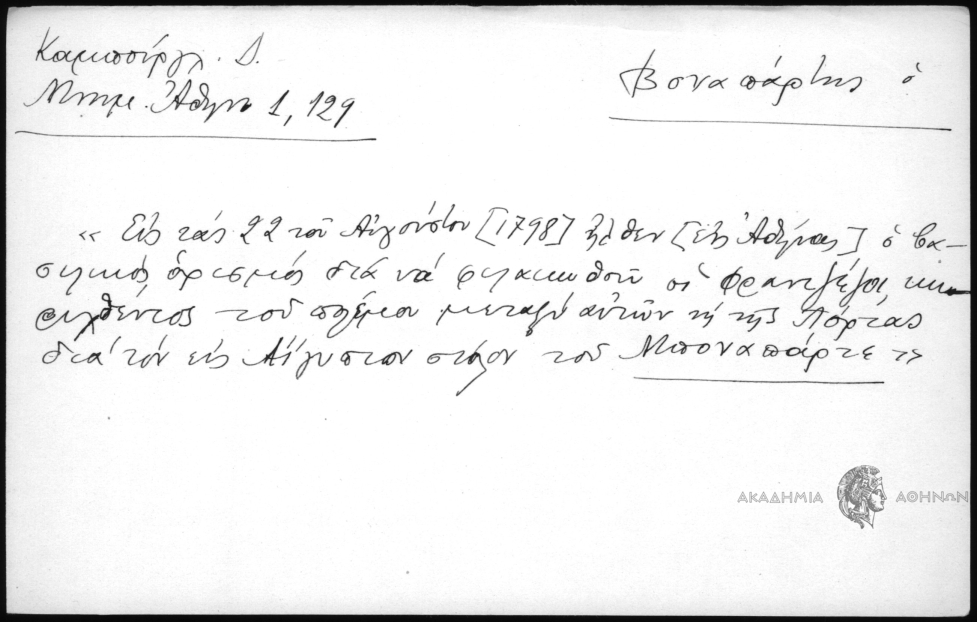 Καμπούργλ. Δ. Βοναπάρτης ὁ
Μνημ. Ἀθην 1, 129
« Εἰς τάς 22 τοῦ Αὐγούστου [1798] ἦλθεν [εἰς Ἀθήνας] ὁ βα-
σιλικός ὁρισμός διά νά φυλακωθοῦν οἱ Φραντζέζοι, κη-
ρυχθέντος τοῦ πολέμου μεταξύ αὐτῶν κ τῆς Πόρτας
διά τόν εἰς Αἴγυπτον στόλον τοῦ Μποναπάρτε »
ΑΚΑΔΗΜΙΑ ΑΘΗΝΩΝ